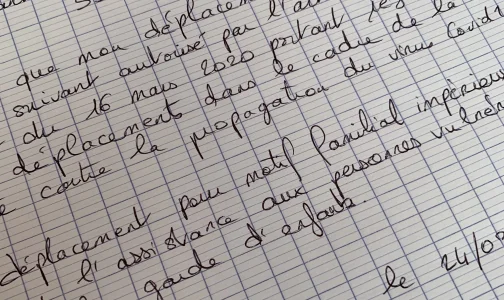 que mon déplacem
suivant autorisé par l'a
du 16 mars 2020 portant
déplacement dans le cadre de la
contre la propagation du virus Covid
déplacement pour motif familial impérieux
l'assistance aux personnes vulnér
garde d'enfants.
le 24/0